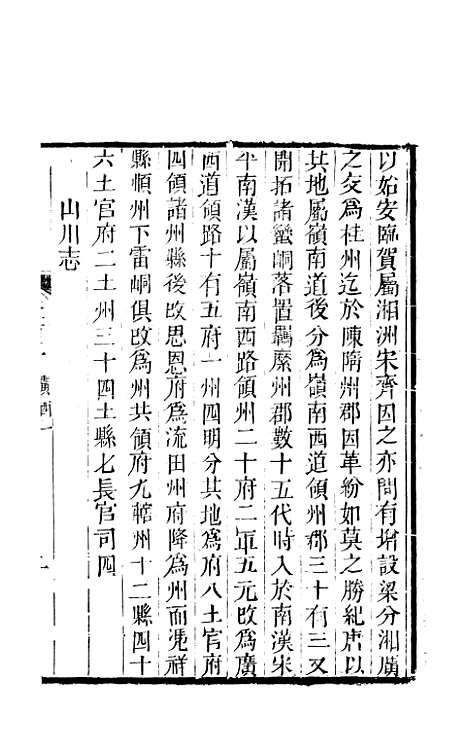 以始安臨賀屬湘洲宋齊因之亦間有增設梁分湘廣
之交爲桂州迄於陳隋州郡因革紛如莫之勝紀唐以
其地屬嶺南道後分爲嶺南西道領州郡三十有三又
開拓諸蠻峒落置羈縻州郡數十五代時入於南漢宋
平南漢以屬嶺南西路領州二十府二軍五元改爲廣
西道領路十有五府一州四明分其地爲府八土官府
四領諸州縣後改思恩府爲流田州府降爲州而凭祥
縣順州下雷峒俱改爲州共領府九轄州十二縣四十
六土官府二土州三十四土縣七長官司四
山川志
廣西